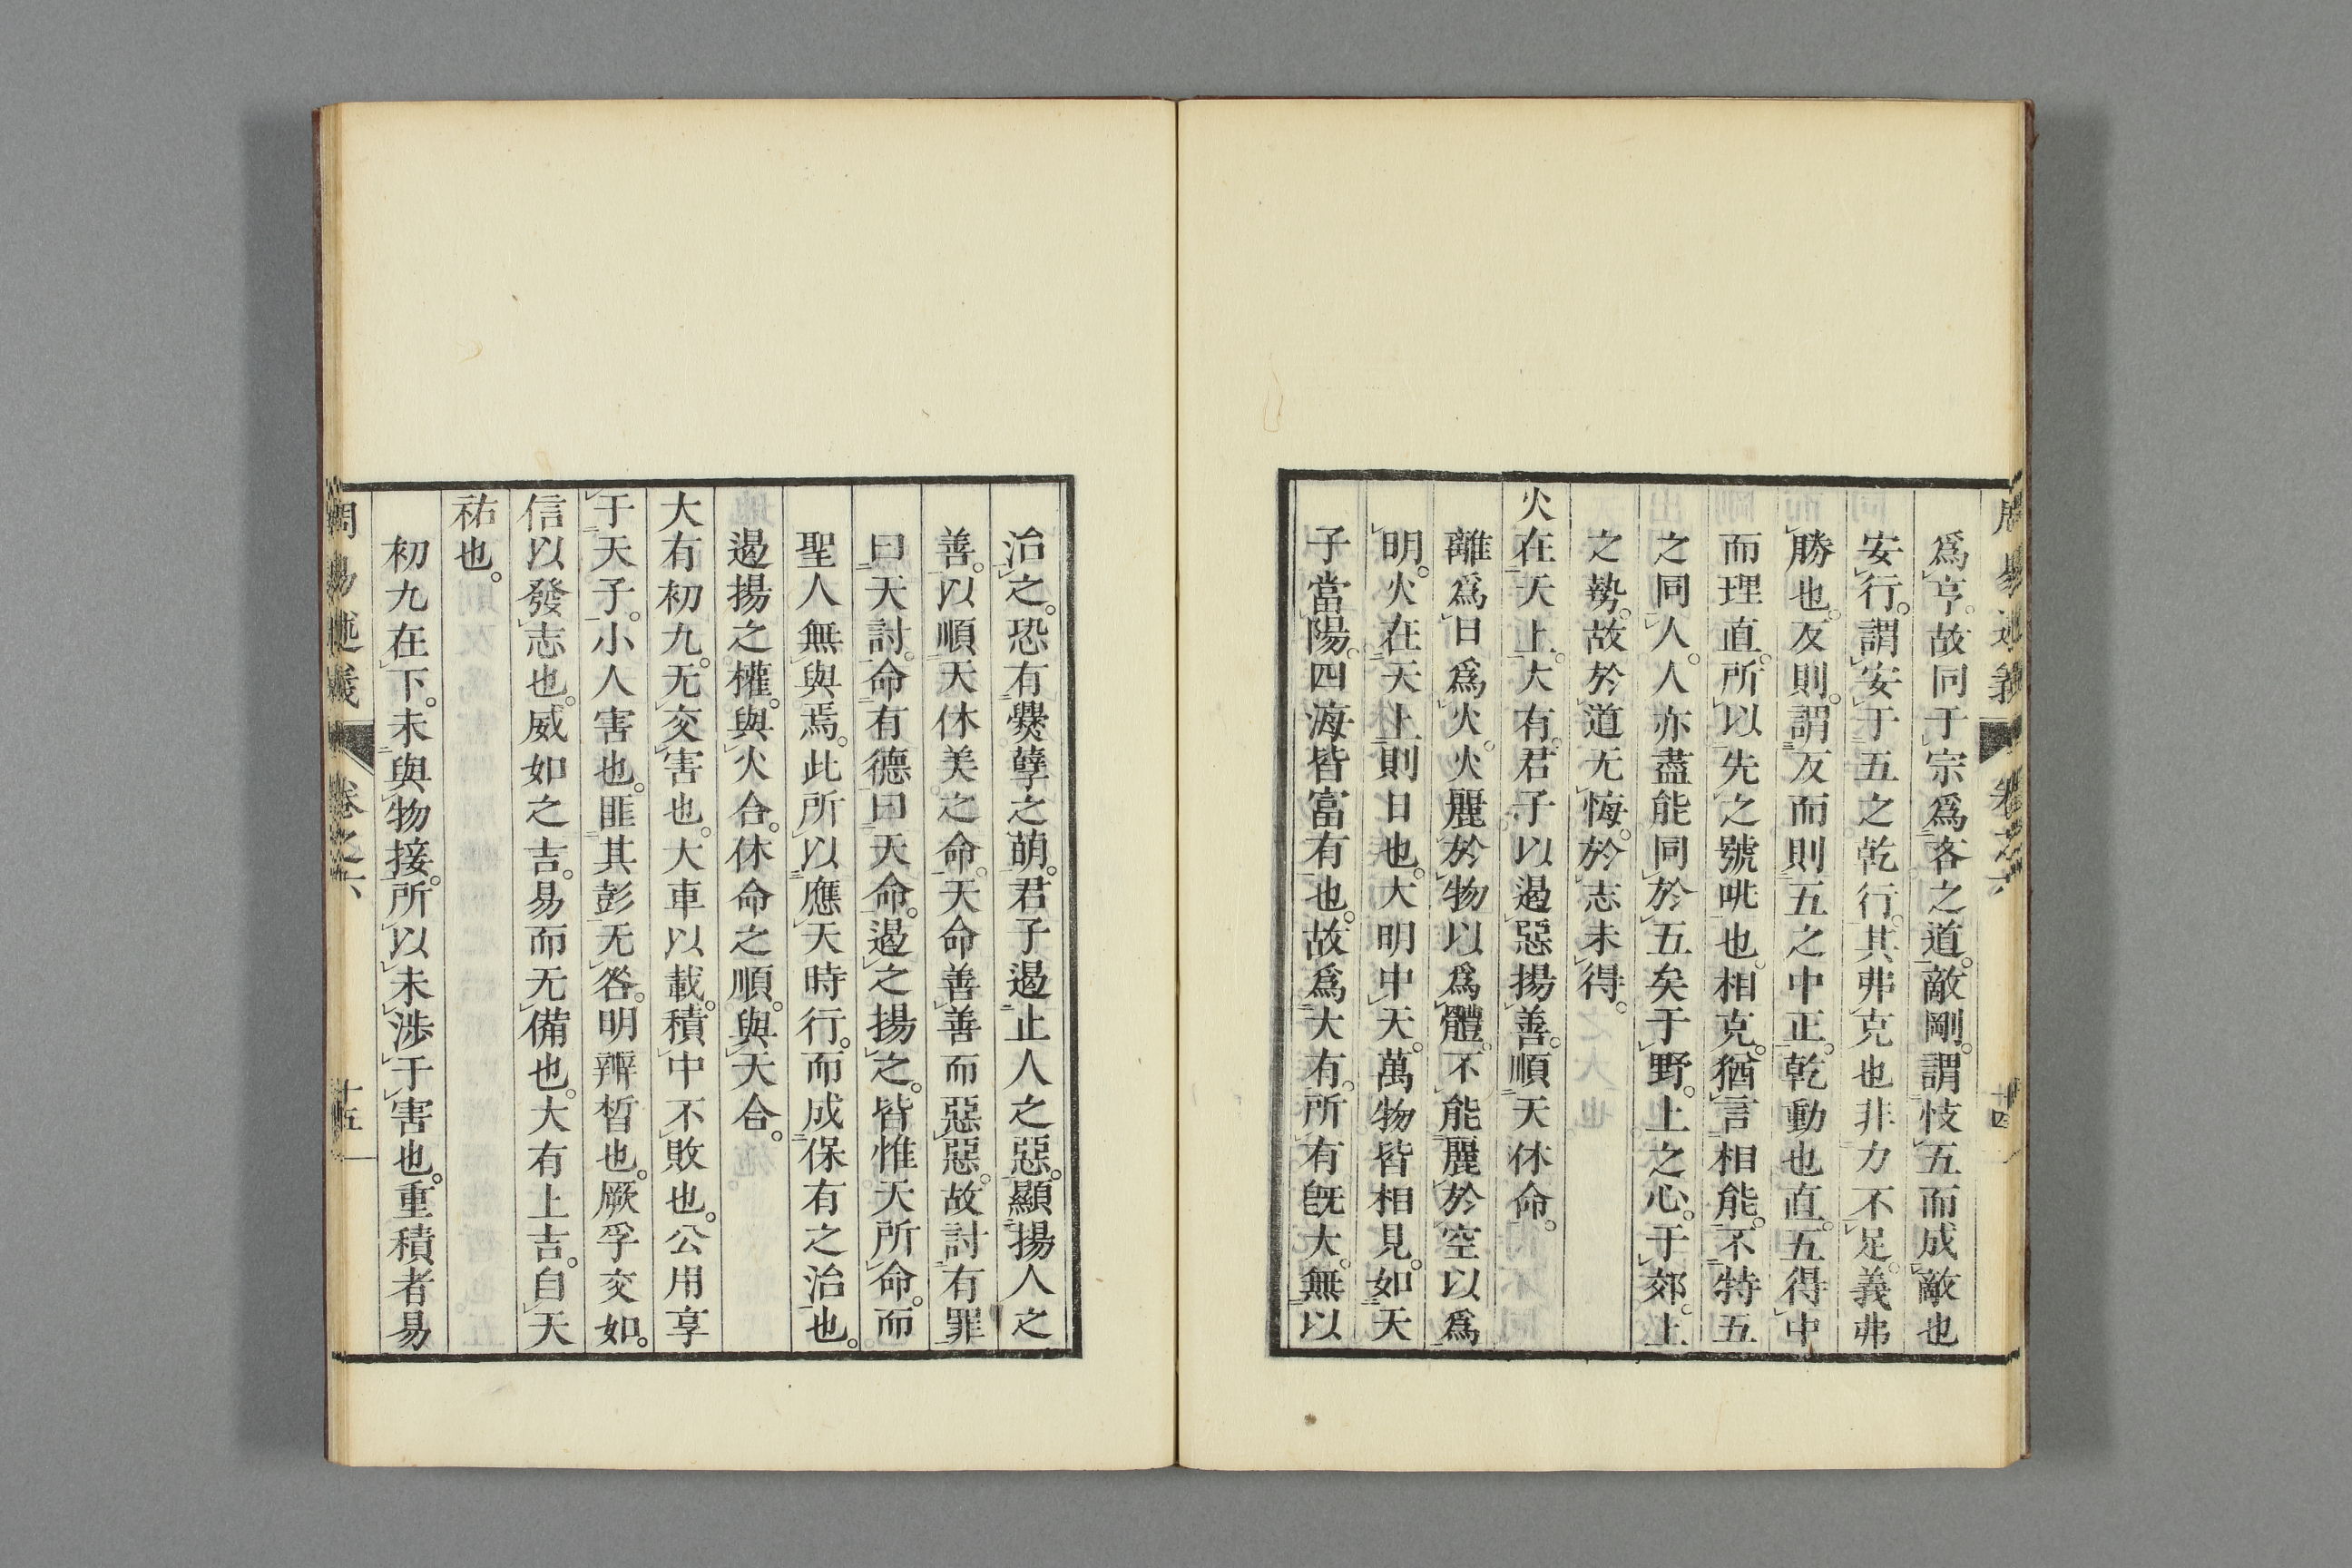 周易述義 卷之六 十四
爲亨。故同于宗爲吝之道。敵剛。謂忮五而成敵也
安行。謂安于五之乾行。其弗克也非力不足。義弗
勝也。反則。謂反而則五之中正。乾動也直。五得中
而理直。所以先之號咷也。相克。猶言相能。不特五
之同人。人亦盡能同於五矣于野。上之心。于郊。上
之勢。故於道无悔。於志未得。
火在天上。大有。君子以遏惡揚善。順天休命。
離爲日爲火。火麗於物以爲體。不能麗於空以爲
明。火在天上則日也。大明中天。萬物皆相見。如天
子當陽。四海皆富有也。故爲大有。所有旣大。無以
治之。恐有釁孽之萌。君子遏止人之惡。顯揚人之
善。以順天休美之命。天命善善而惡惡。故討有罪
曰天討。命有德曰天命。遏之揚之。皆惟天所命。而
聖人無與焉。此所以應天時行。而成保有之治也。
遏揚之權。與火合。休命之順。與天合。
大有初九。无交害也。大車以載。積中不敗也。公用享
于天子。小人害也。匪其彭无咎。明辨晳也。厥孚交如。
信以發志也。威如之吉。易而无備也。大有上吉。自天
祐也。
初九在下。未與物接。所以未渉于害也。重積者易
周易述義 卷之六 十五